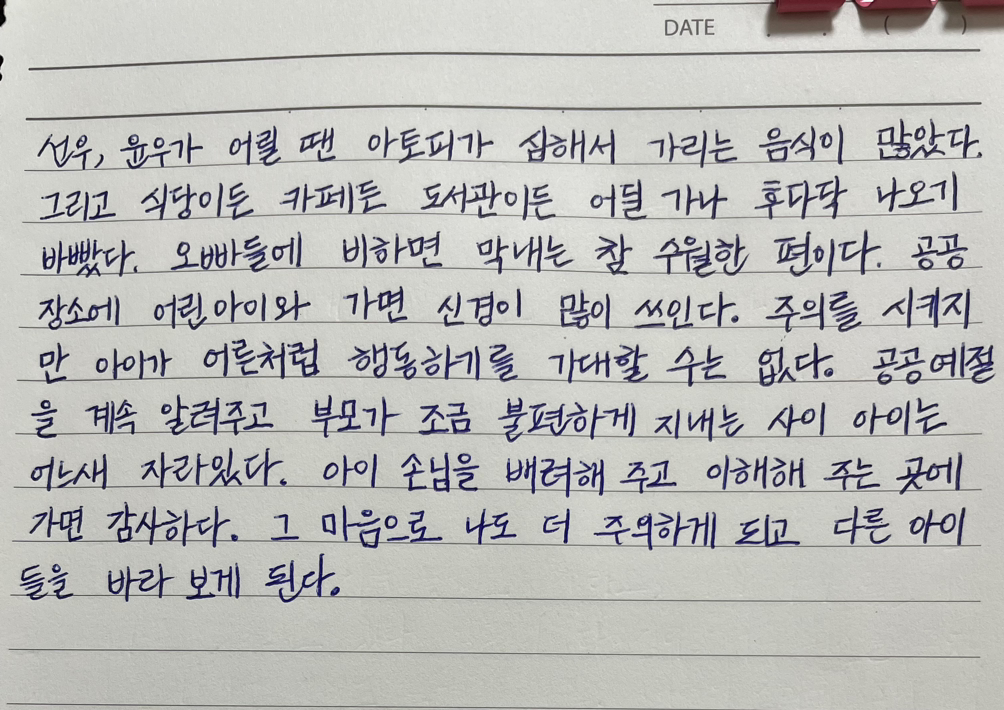 DATE . . ( )
선우, 윤우가 어릴 땐 아토피가 심해서 가리는 음식이 많았다.
그리고 식당이든 카페든 도서관이든 어딜 가나 후다닥 나오기
바빴다. 오빠들에 비하면 막내는 참 수월한 편이다. 공공
장소에 어린아이와 가면 신경이 많이 쓰인다. 주의를 시키지
만 아이가 어른처럼 행동하기를 기대할 수는 없다. 공공예절
을 계속 알려주고 부모가 조금 불편하게 지내는 사이 아이는
어느새 자라있다. 아이 손님을 배려해 주고 이해해 주는 곳에
가면 감사하다. 그 마음으로 나도 더 주의하게 되고 다른 아이
들을 바라 보게 된다.